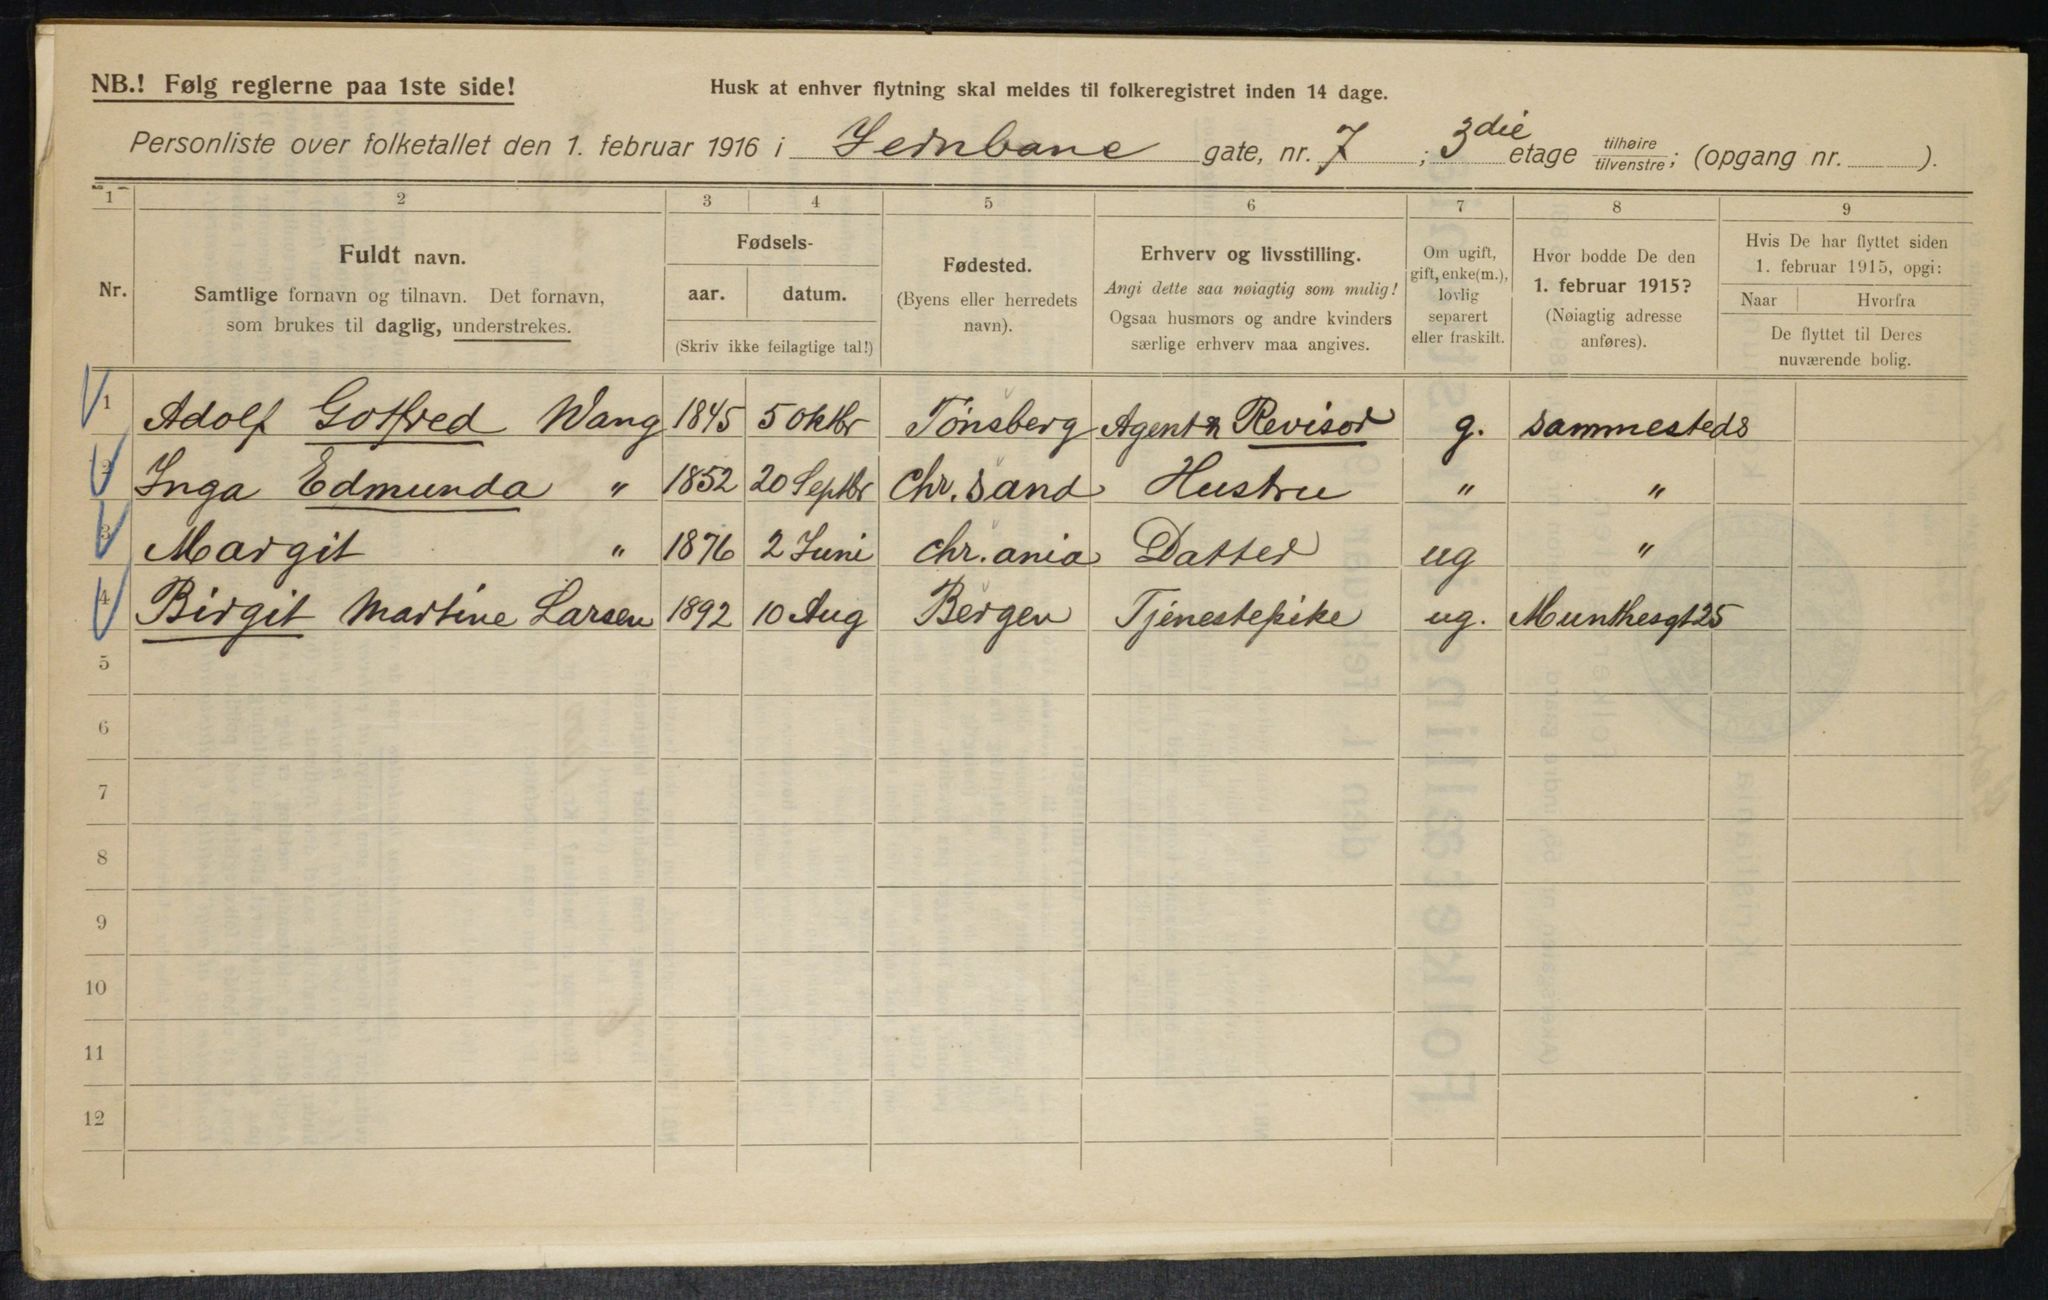 NB.! Følg reglerne paa 1ste side!
Husk at enhver flytning skal meldes til folkeregistret inden 14 dage.
Personliste over folketallet den 1. februar 1916 i Jernbane gate, nr. 7 ; 3die etage tilhøire tilvenstre ; (opgang nr. ).
1 2 3 4 5 6 7 8 9
Nr.
Fuldt navn.
Samtlige fornavn og tilnavn. Det fornavn,
som brukes til daglig, understrekes.
Fødsels-
aar. datum.
(Skriv ikke feilagtige tal!)
Fødested.
(Byens eller herredets
navn).
Erhverv og livsstilling.
Angi dette saa nøiagtig som mulig!
Ogsaa husmors og andre kvinders
særlige erhverv maa angives.
Om ugift,
gift, enke(m.),
lovlig
separert
eller fraskilt.
Hvor bodde De den
1. februar 1915?
(Nøiagtig adresse
anføres).
Hvis De har flyttet siden
1. februar 1915, opgi:
Naar Hvorfra
De flyttet til Deres
nuværende bolig.
1 Adolf Gotfred Wang 1845 5 oktbr Tønsberg Agent & Revisor g. sammesteds
2 Inga Edmunda " 1852 20 Septbr Chr. sand Hustru " "
3 Margit " 1876 2 Juni Chr. ania Datter ug "
4 Birgit Martine Larsen 1892 10 Aug Bergen Tjenestepike ug. Munthesgt 25
5
6
7
8
9
10
11
12